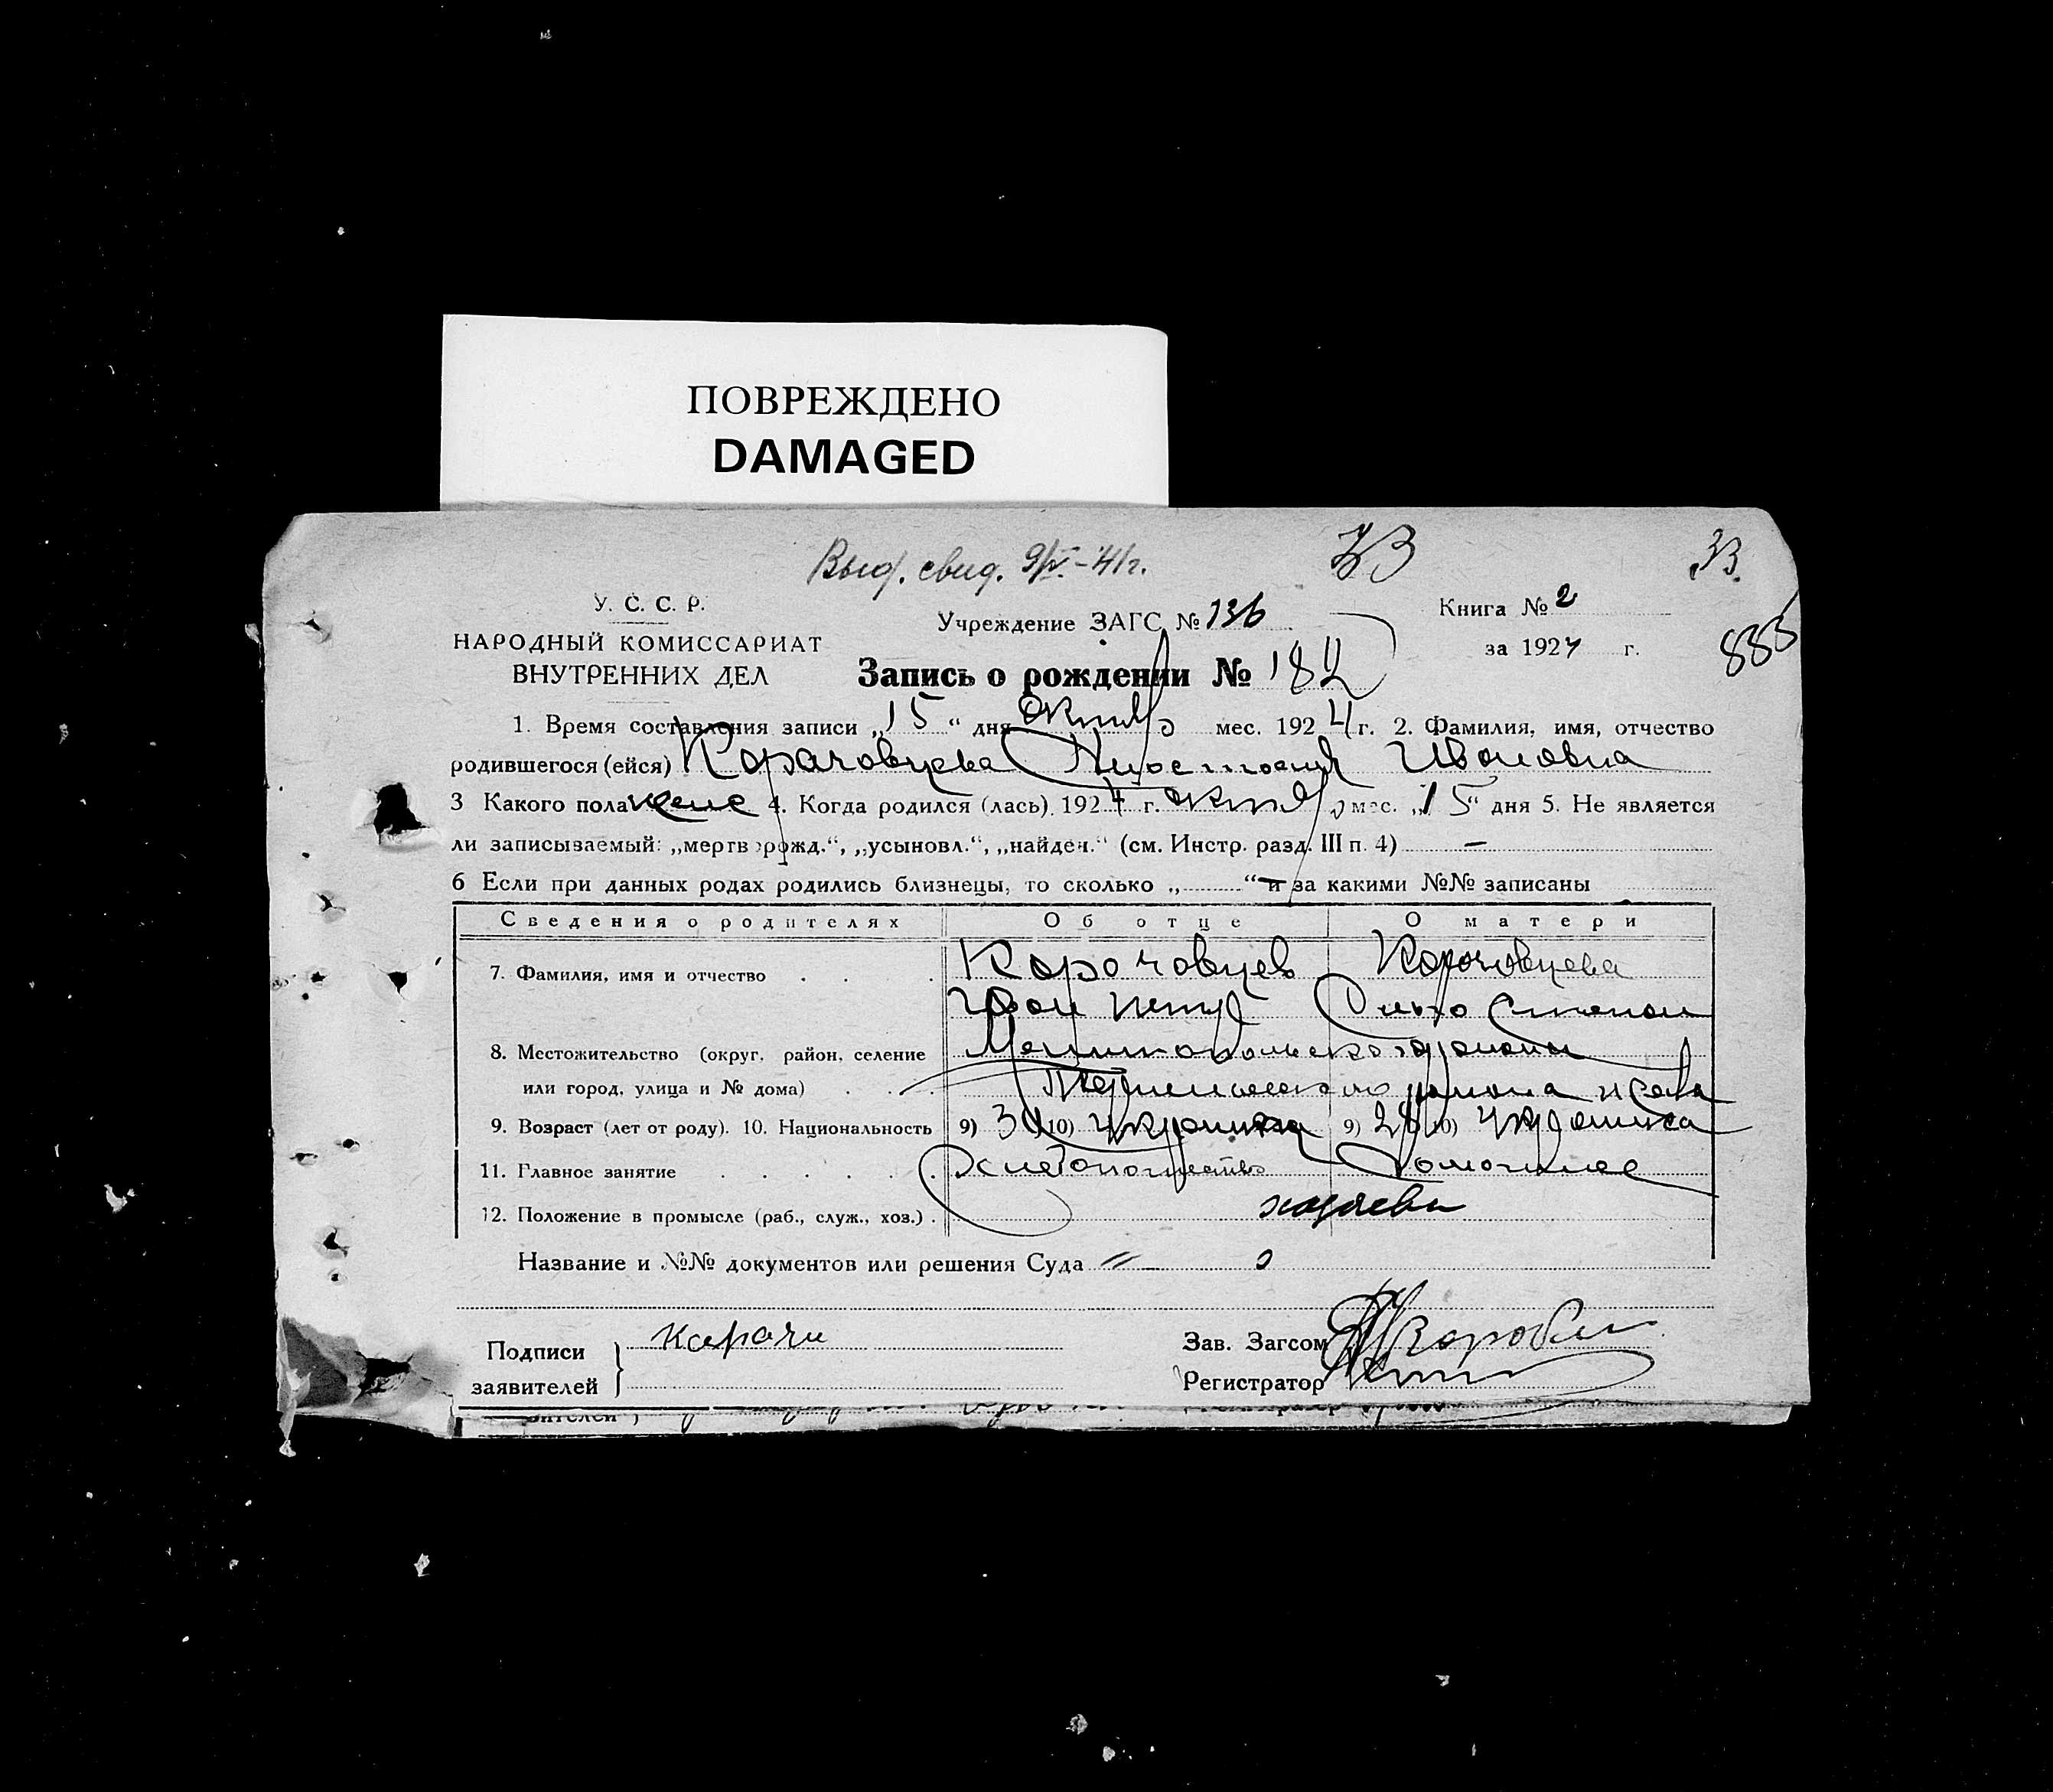 ПОВРЕЖДЕНО
DAMAGED
Выд. свид. 9/V-41г.
33
У. С. С. Р.
Учреждение ЗАГС № 136
Книга № 2
НАРОДНЫЙ КОМИССАРИАТ
за 1924 г.
883
ВНУТРЕННИХ ДЕЛ
Запись о рождении № 182
1. Время составления записи „15“ дня октяб мес. 1924 г. 2. Фамилия, имя, отчество
родившегося (ейся) Корачовцева Анастасия Ивановна
3 Какого пола жене 4. Когда родился (лась). 1924 г. октяб мес. „15“ дня 5. Не является
ли записываемый: „мертворожд.“, „усыновл.“, „найден.“ (см. Инстр. разд. III п. 4) —
6 Если при данных родах родились близнецы, то сколько „ “ и за какими №№ записаны
Сведения о родителях Об отце О матери
7. Фамилия, имя и отчество Корочовцев Корочовцева
Иван Петр Степан
8. Местожительство (округ, район, селение Мелитопольского
или город, улица и № дома) района
9. Возраст (лет от роду). 10. Национальность 9) 30 10) украинец 9) 28 10) украинка
11. Главное занятие хлебопашество домашнее
12. Положение в промысле (раб., служ., хоз.) хозяева
Название и №№ документов или решения Суда
Подписи
заявителей
Карачи
Зав. Загсом
Регистратор